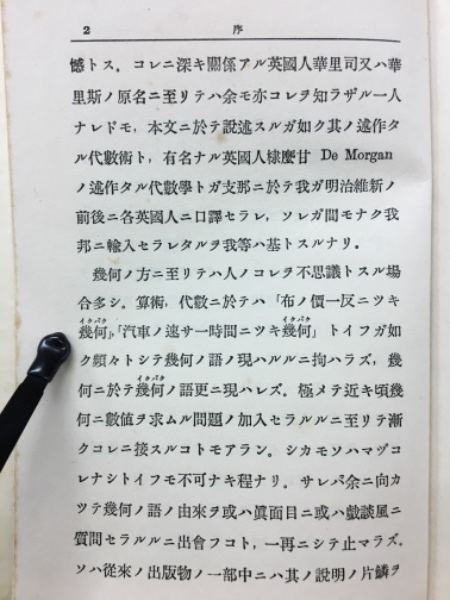 2 序
憾トス. コレニ深キ關係アル英國人華里司又ハ華
里斯ノ原名ニ至リテハ余モ亦コレヲ知ラザル一人
ナレドモ, 本文ニ於テ説述スルガ如ク其ノ述作タ
ル代數術ト, 有名ナル英國人棣麼甘 De Morgan
ノ述作タル代數學トガ支那ニ於テ我ガ明治維新ノ
前後ニ各英國人ニ口譯セラレ, ソレガ間モナク我
邦ニ輸入セラレタルヲ我等ハ基トスルナリ.
幾何ノ方ニ至リテハ人ノコレヲ不思議トスル場
合多シ. 算術, 代數ニ於テハ「布ノ價一反ニツキ
イクバク イクバク
幾何」,「汽車ノ速サ一時間ニツキ幾何」トイフガ如
ク頻々トシテ幾何ノ語ノ現ハルルニ拘ハラズ, 幾
イクバク
何ニ於テ幾何ノ語更ニ現ハレズ. 極メテ近キ頃幾
何ニ數値ヲ求ムル問題ノ加入セラルルニ至リテ漸
クコレニ接スルコトモアラン. シカモソハマヅコ
レナシトイフモ不可ナキ程ナリ. サレバ余ニ向カ
ツテ幾何ノ語ノ由來ヲ或ハ眞面目ニ或ハ戲談風ニ
質問セラルルニ出會フコト, 一再ニシテ止マラズ.
ソハ從來ノ出版物ノ一部中ニハ其ノ説明ノ片鱗ヲ